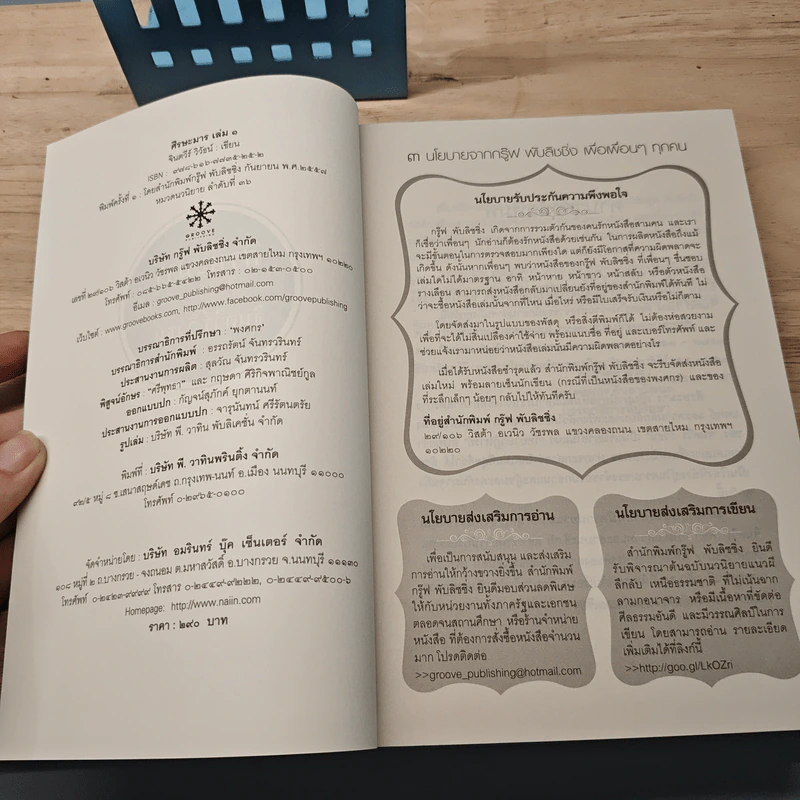 ศีรษะมาร เล่ม ๑
จินตวีร์ วิวัธน์ : เขียน
ISBN : ๙๗๘-๖๑๖-๗๗๓๕-๒๕-๒
พิมพ์ครั้งที่ ๑ - โดยสำนักพิมพ์กรู๊ฟ พับลิชชิ่ง กันยายน พ.ศ.๒๕๕๗
หมวดนวนิยาย ลำดับที่ ๓๖
GROOVE
บริษัท กรู๊ฟ พับลิชชิ่ง จำกัด
เลขที่ ๒๙/๑๐๖ วิสต้า อเวนิว วัชรพล แขวงคลองถนน เขตสายไหม กรุงเทพฯ ๑๐๒๒๐
โทรศัพท์ : ๐๘๕-๖๖๕-๕๔๒๒ โทรสาร : ๐๒-๑๕๓-๐๕๐๐
อีเมล : groove_publishing@hotmail.com
เว็บไซต์ : www.groovebooks.com, http://www.facebook.com/groovepublishing
บรรณาธิการที่ปรึกษา : "พงศกร"
บรรณาธิการสำนักพิมพ์ : อรรถรัตน์ จันทรวรินทร์
ประสานงานการผลิต : สุลวัณ จันทรวรินทร์
พิสูจน์อักษร : "ศรีพุทธา" และ กฤษดา ศิริกิจพาณิชย์กูล
ออกแบบปก : กัญจน์สุภัคค์ ยุกตานนท์
ประสานงานการออกแบบปก : จารุนันทน์ ศรีรัตนตรัย
รูปเล่ม : บริษัท พี. วาทิน พับลิเคชั่น จำกัด
พิมพ์ที่ : บริษัท พี. วาทินพรินติ้ง จำกัด
๙๒/๕ หมู่ ๘ ซ.เสนาสฤษด์เดช ถ.กรุงเทพ-นนท์ อ.เมือง นนทบุรี ๑๑๐๐๐
โทรศัพท์ ๐-๒๙๖๕-๐๑๐๐
จัดจำหน่ายโดย : บริษัท อมรินทร์ บุ๊ค เซ็นเตอร์ จำกัด
๑๐๘ หมู่ที่ ๒ ถ.บางกรวย - จงถนอม ต.มหาสวัสดิ์ อ.บางกรวย จ.นนทบุรี ๑๑๑๓๐
โทรศัพท์ ๐-๒๔๒๓-๙๙๙๙ โทรสาร ๐-๒๔๔๙-๙๒๒๒, ๐-๒๔๔๙-๙๕๐๐-๖
Homepage: http://www.naiin.com
ราคา : ๒๙๐ บาท
๓ นโยบายจากกรู๊ฟ พับลิชชิ่ง เพื่อเพื่อนๆ ทุกคน
นโยบายรับประกันความพึงพอใจ
กรู๊ฟ พับลิชชิ่ง เกิดจากการรวมตัวกันของคนรักหนังสือสามคน และเรา
ก็เชื่อว่าเพื่อนๆ นักอ่านก็ต้องรักหนังสือด้วยเช่นกัน ในการผลิตหนังสือถึงแม้
จะมีขั้นตอนในการตรวจสอบมากเพียงใด แต่ก็ยังมีโอกาสที่ความผิดพลาดจะ
เกิดขึ้น ดังนั้นหากเพื่อนๆ พบว่าหนังสือของกรู๊ฟ พับลิชชิ่ง ที่เพื่อนๆ ชื่นชอบ
เล่มใดไม่ได้มาตรฐาน อาทิ หน้าหาย หน้าขาว หน้าสลับ หรือตัวหนังสือ
รางเลือน สามารถส่งหนังสือกลับมาเปลี่ยนยังที่อยู่ของสำนักพิมพ์ได้ทันที ไม่
ว่าจะซื้อหนังสือเล่มนั้นจากที่ไหน เมื่อไหร่ หรือมีใบเสร็จรับเงินหรือไม่ก็ตาม
โดยจัดส่งมาในรูปแบบของพัสดุ หรือสิ่งตีพิมพ์ก็ได้ ไม่ต้องห่อสวยงาม
เพื่อที่จะได้ไม่สิ้นเปลืองค่าใช้จ่าย พร้อมแนบชื่อ ที่อยู่ และเบอร์โทรศัพท์ และ
ช่วยแจ้งเรามาหน่อยว่าหนังสือเล่มนั้นมีความผิดพลาดอย่างไร
เมื่อได้รับหนังสือชำรุดแล้ว สำนักพิมพ์กรู๊ฟ พับลิชชิ่ง จะรีบจัดส่งหนังสือ
เล่มใหม่ พร้อมลายเซ็นนักเขียน (กรณีที่เป็นหนังสือของพงศกร) และของ
ที่ระลึกเล็กๆ น้อยๆ กลับไปให้ทันทีครับ
ที่อยู่สำนักพิมพ์ กรู๊ฟ พับลิชชิ่ง
๒๙/๑๐๖ วิสต้า อเวนิว วัชรพล แขวงคลองถนน เขตสายไหม กรุงเทพฯ
๑๐๒๒๐
นโยบายส่งเสริมการอ่าน
เพื่อเป็นการสนับสนุน และส่งเสริม
การอ่านให้กว้างขวางยิ่งขึ้น สำนักพิมพ์
กรู๊ฟ พับลิชชิ่ง ยินดีมอบส่วนลดพิเศษ
ให้กับหน่วยงานทั้งภาครัฐและเอกชน
ตลอดจนสถานศึกษา หรือร้านจำหน่าย
หนังสือ ที่ต้องการสั่งซื้อหนังสือจำนวน
มาก โปรดติดต่อ
>>groove_publishing@hotmail.com
นโยบายส่งเสริมการเขียน
สำนักพิมพ์กรู๊ฟ พับลิชชิ่ง ยินดี
รับพิจารณาต้นฉบับนวนิยายแนวผี
ลึกลับ เหนือธรรมชาติ ที่ไม่เน้นฉาก
ลามกอนาจาร หรือมีเนื้อหาที่ขัดต่อ
ศีลธรรมอันดี และมีวรรณศิลป์ในการ
เขียน โดยสามารถอ่าน รายละเอียด
เพิ่มเติมได้ที่ลิงก์นี้
>>http://goo.gl/LkOZri